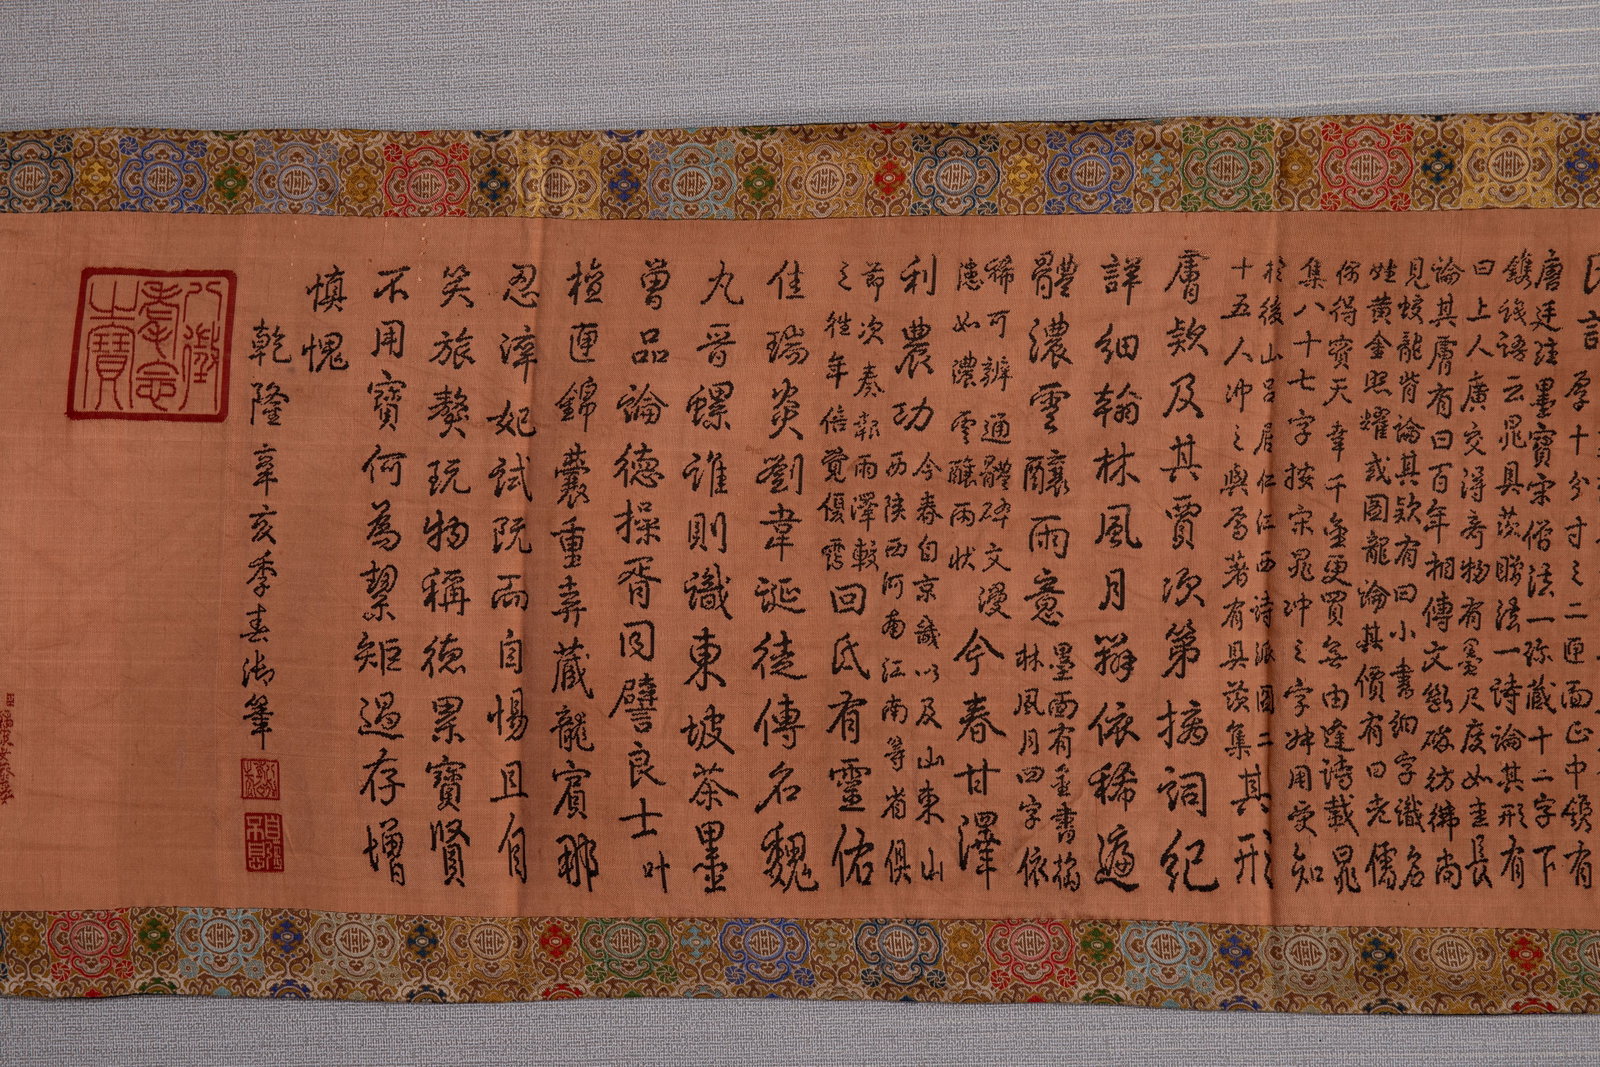 厚十分寸之二匣面正中鐫有
唐廷珪墨寶宋僧法一珍藏十二字下
鐫銘語云晁具茨贈法一詩論其形有
曰上人廣交得奇物有墨尺度如圭長
論其膚有曰百年相傳文斷碎彷彿尚
見蛟龍背論其款有曰小書細字識名
姓黃金照耀或圖龍論其價有曰老儒
倘得寶天幸千金更買無由逢詩載晁
集八十七字按宋晁沖之字叔用受知
於後山呂居仁江西詩派圖二
十五人沖之與焉著有具茨集其形
膚款及其賈次第摛詞紀
詳細翰林風月辭依稀遍
體濃雲釀雨意墨面有金書摛
林風月四字依
稀可辨通體碎文漫
漶如濃雲釀雨狀今春甘澤
利農功今春自京畿以及山東山
西陝西河南江南等省俱
節次奏報雨澤較
之往年倍覺優霑回氏有靈佑
佳瑞炎劉韋誕徒傳名魏
九晉螺誰則識東坡茶墨
曾品論德操胥同譬良士叶
檀匣錦囊重弆藏龍賓那
忍漳妃試既而自惕且自
笑旅獒玩物稱德累寶賢
不用寶何為絜矩過存增
慎愧
乾隆辛亥季春御筆
自彊不息
八徵耄念之寶